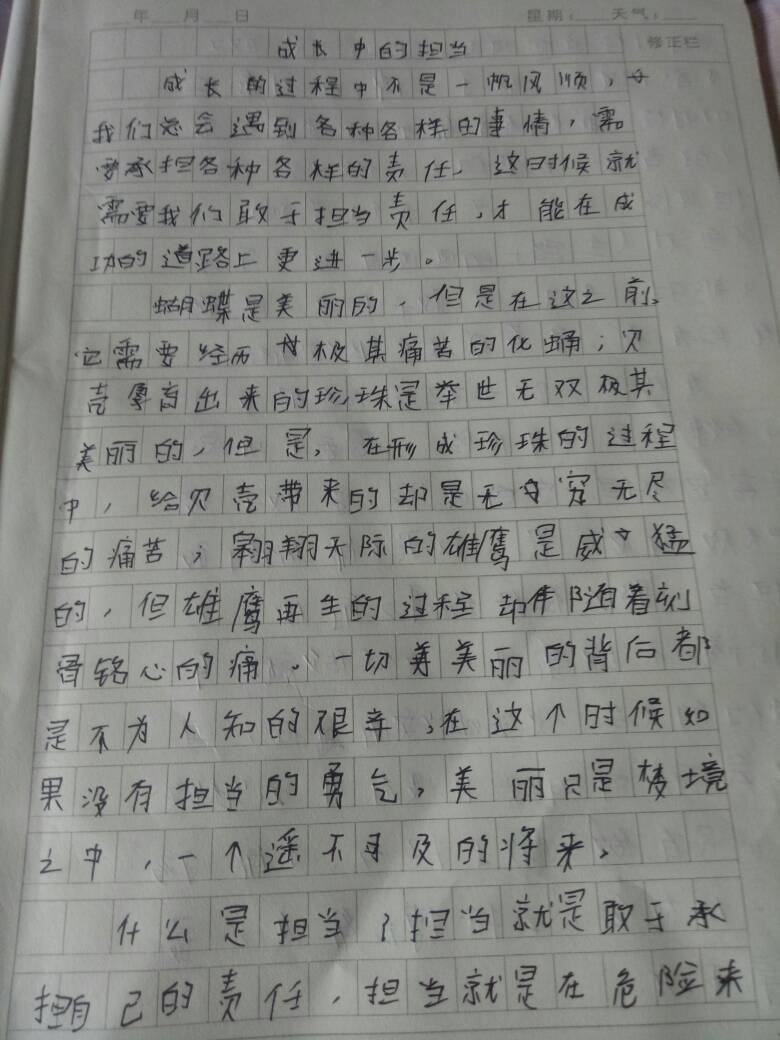 年 月 日 星期： 天气：
成长中的担当 修正栏
成长的过程中不是一帆风顺，
我们总会遇到各种各样的事情，需
要承担各种各样的责任，这时候就
需要我们敢于担当责任，才能在成
功的道路上更进一步。
蝴蝶是美丽的，但是在这之前，
它需要经历极其痛苦的化蛹；贝
壳孕育出来的珍珠是举世无双极其
美丽的，但是，在形成珍珠的过程
中，给贝壳带来的却是无穷无尽
的痛苦；翱翔天际的雄鹰是威猛
的，但雄鹰再生的过程却伴随着刻
骨铭心的痛。一切美丽的背后都
是不为人知的艰辛，在这个时候如
果没有担当的勇气，美丽只是梦境
之中，一个遥不可及的将来。
什么是担当？担当就是敢于承
担自己的责任，担当就是在危险来